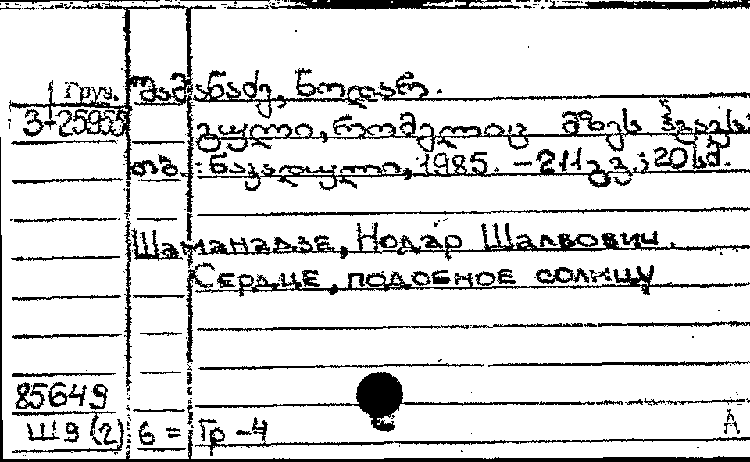 Груз. შამანაძე, ნოდარ.
3-25955 გული, რომელიც მზეს ჰგავს:
თბ. : ნაკადული, 1985. - 211 გვ.; 20 სმ.
Шаманадзе, Нодар Шалвович.
Сердце, подобное солнцу
85649
Ш9(2) 6 = Гр - 4 А